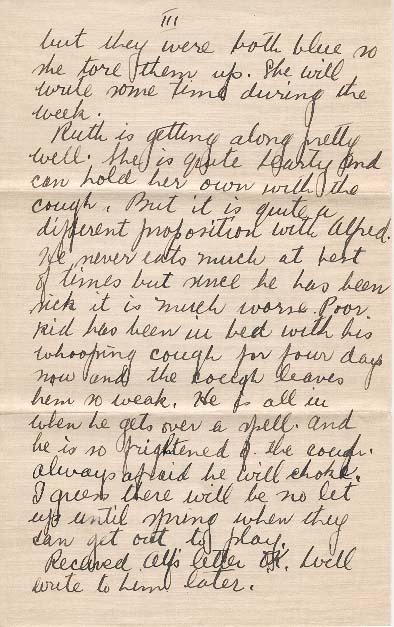 III
but they were both blue so
she tore them up. She will
write some time during the
week.
Ruth is getting along pretty
well. She is quite hearty and
can hold her own with the
cough. But it is quite a
different proposition with Alfred.
He never eats much at best
of times but since he has been
sick it is much worse. Poor
kid has been in bed with his
whooping cough for four days
now and the cough leaves
him so weak. He is all in
when he gets over a spell. and
he is so frightened of the cough.
always afraid he will choke.
I guess there will be no let
up until spring when they
can get out to play.
Received letter OK. Will
write to him later.